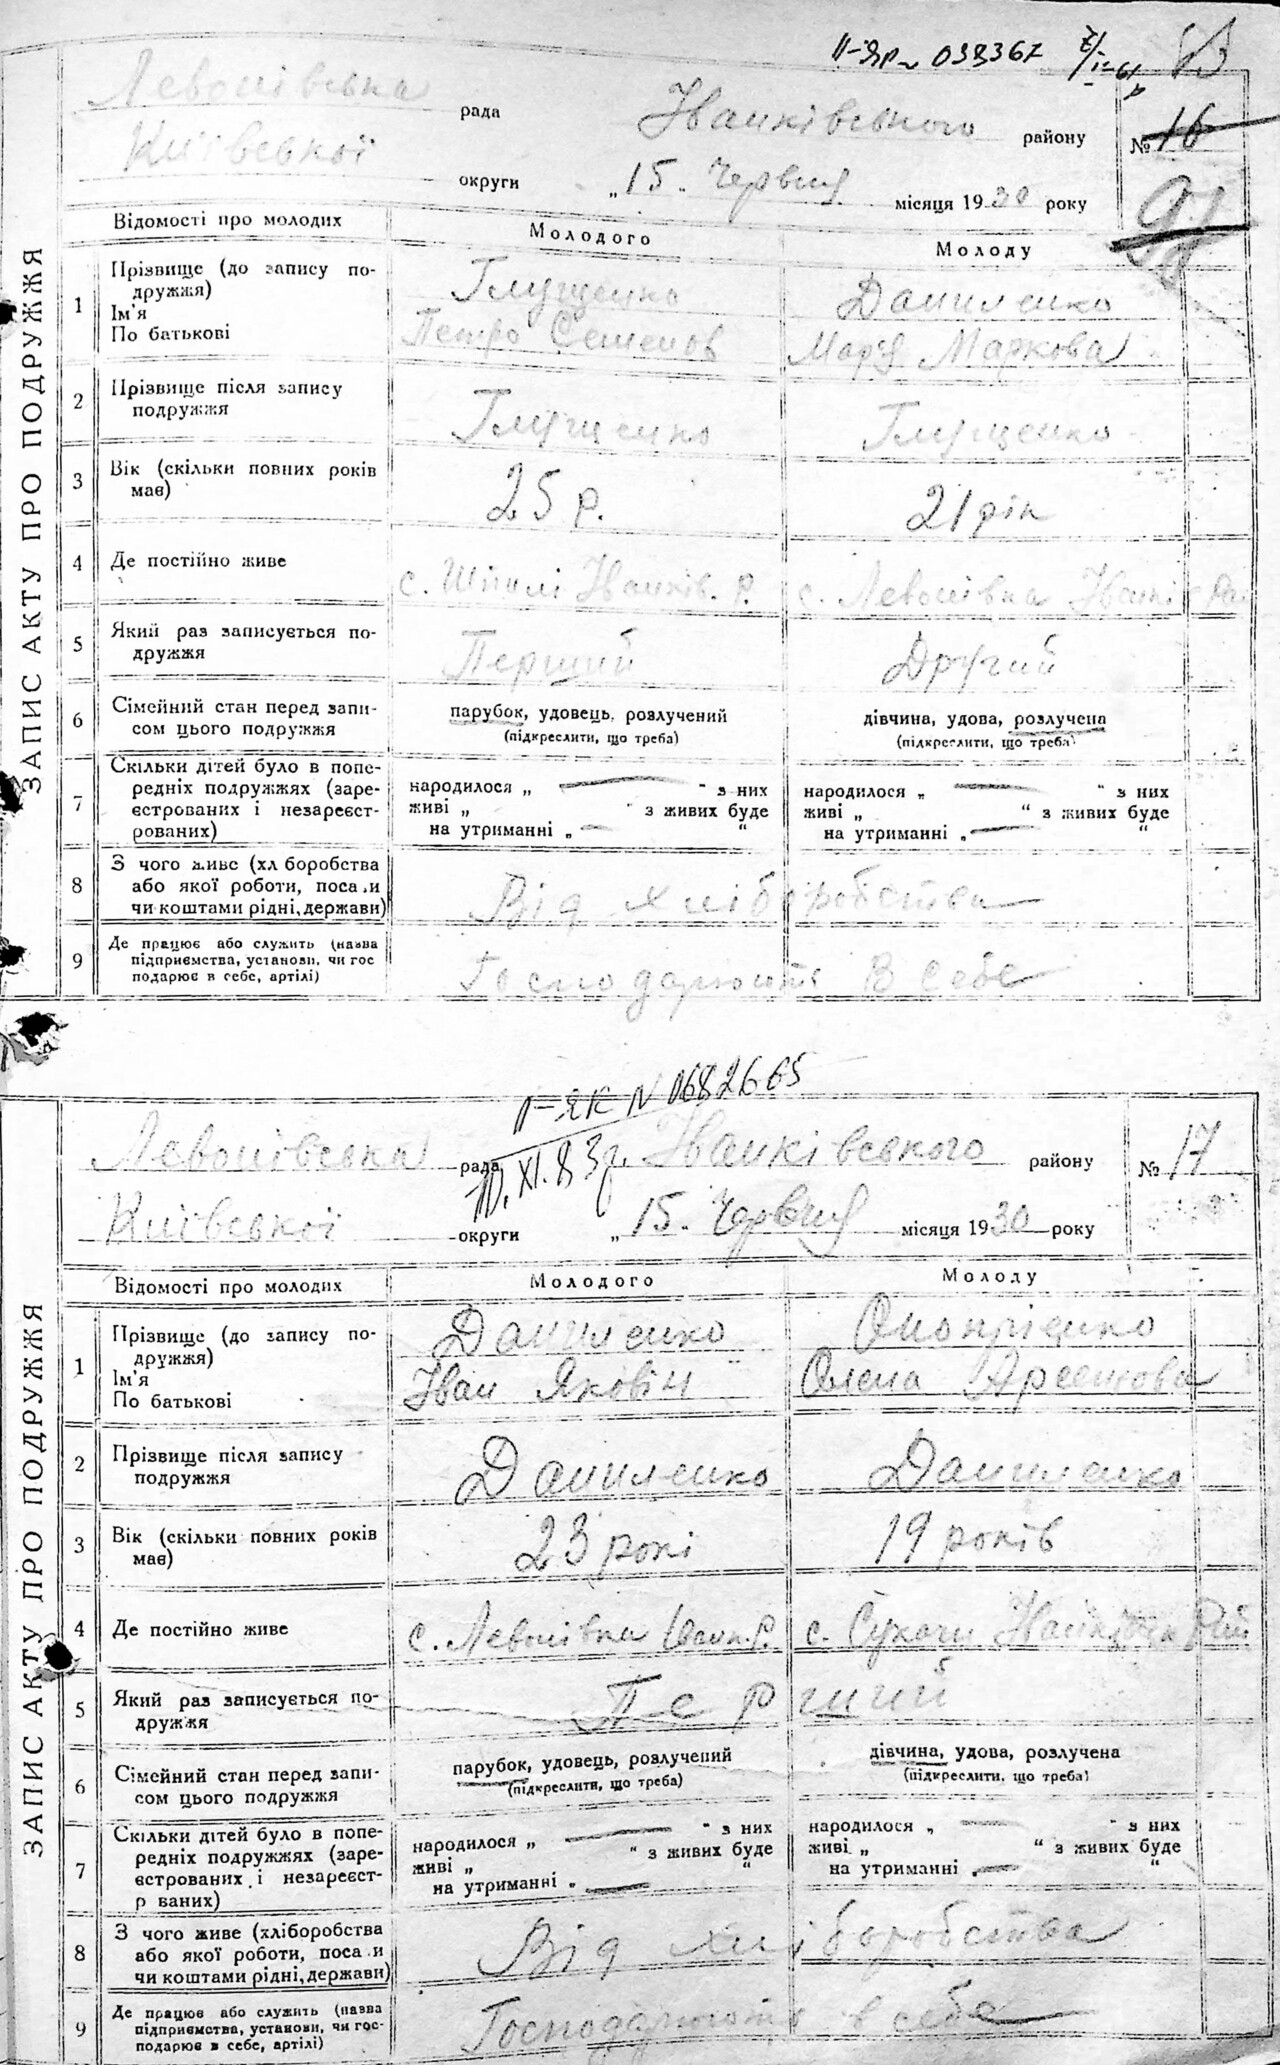 II-ЯР № 038367
Левонівська рада Іванківського району № 16
Київської округи „15. Червня місяця 1930 року
ЗАПИС АКТУ ПРО ПОДРУЖЖЯ
Відомості про молодих Молодого Молоду
1 Прізвище (до запису по-
дружжя) Глущенко Даниленко
Ім'я
По батькові Петро Семенов Мар'я Маркова
2 Прізвище після запису
подружжя Глущенко Глущенко
3 Вік (скільки повних років
має) 25 р. 21 рік
4 Де постійно живе с. Шпилі Іванків. Р. с. Левонівка Іванків Рай
5 Який раз записується по-
дружжя Перший Другий
6 Сімейний стан перед запи-
сом цього подружжя
парубок, удовець, розлучений дівчина, удова, розлучена
(підкреслити, що треба) (підкреслити, що треба)
7 Скільки дітей було в попе-
редніх подружжях (заре-
єстрованих і незареєст-
рованих)
народилося „ — " з них народилося „ — " з них
живі „ " з живих буде живі „ " з живих буде
на утриманні „ — " на утриманні „ — "
8 З чого живе (хліборобства
або якої роботи, посади
чи коштами рідні, держави) Від хліборобства
9 Де працює або служить (назва
підприємства, установи, чи гос
подарює в себе, артілі) Господарюють в себе
II-ЯК N 0682665
10.XI.83 г.
Левонівська рада Іванківського району № 17
Київської округи „15. Червня місяця 1930 року
ЗАПИС АКТУ ПРО ПОДРУЖЖЯ
Відомості про молодих Молодого Молоду
1 Прізвище (до запису по-
дружжя) Даниленко Онопрієнко
Ім'я
По батькові Іван Яковін Олена Арсенова
2 Прізвище після запису
подружжя Даниленко Даниленко
3 Вік (скільки повних років
має) 23 рокі 19 років
4 Де постійно живе с. Левонівка Іванк.Р. с. Сукачи
5 Який раз записується по-
дружжя Перший
6 Сімейний стан перед запи-
сом цього подружжя
парубок, удовець, розлучений дівчина, удова, розлучена
(підкреслити, що треба) (підкреслити, що треба)
7 Скільки дітей було в попе-
редніх подружжях (заре-
єстрованих і незареєст-
р ваних)
народилося „ — " з них народилося „ — " з них
живі „ " з живих буде живі „ " з живих буде
на утриманні „ — " на утриманні „ — "
8 З чого живе (хліборобства
або якої роботи, поса и
чи коштами рідні, держави) Від хліборобства
9 Де працює або служить (назва
підприємства, установи, чи гос-
подарює в себе, артілі) Господарюють в себе